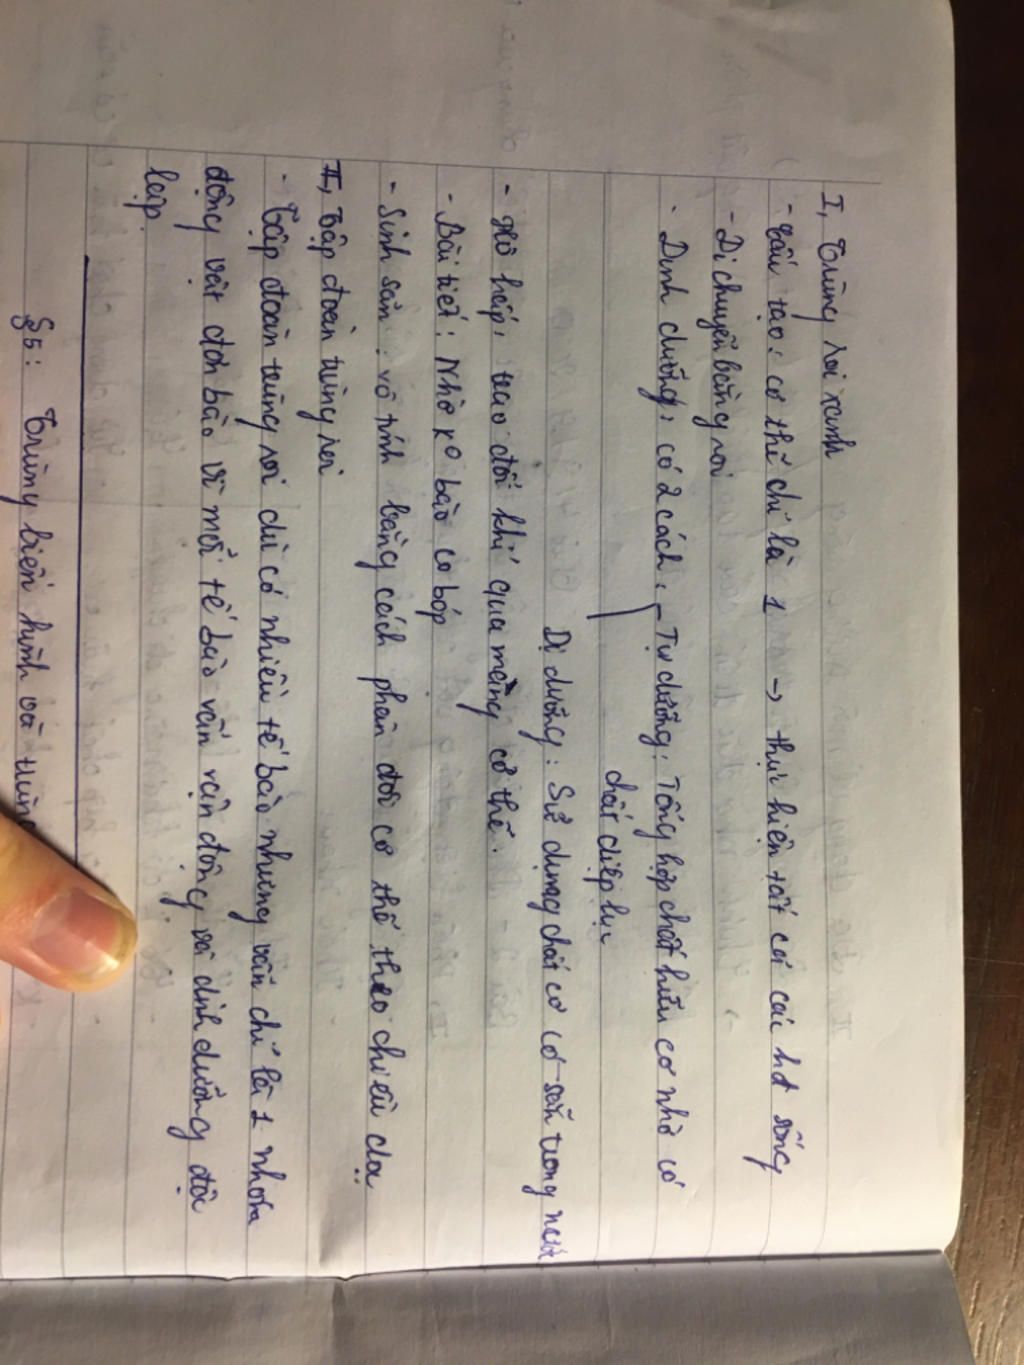 I, Trùng roi xanh
- Cấu tạo: cơ thể chỉ là 1 → thực hiện tất cả các hđ sống
- Di chuyển bằng roi
- Dinh dưỡng: có 2 cách: - Tự dưỡng: Tổng hợp chất hữu cơ nhờ có
chất diệp lục
Dị dưỡng: Sử dụng chất cơ có sẵn trong nước
- Hô hấp: trao đổi khí qua màng cơ thể.
- Bài tiết: Nhờ ko bào co bóp
- Sinh sản: vô tính bằng cách phân đôi cơ thể theo chiều dọc
II, Tập đoàn trùng roi
- Tập đoàn trùng roi dù có nhiều tế bào nhưng vẫn chỉ là 1 nhóm
động vật đơn bào vì mỗi tế bào vẫn vận động và dinh dưỡng độc
lập.
§5: Trùng biến hình và trùng